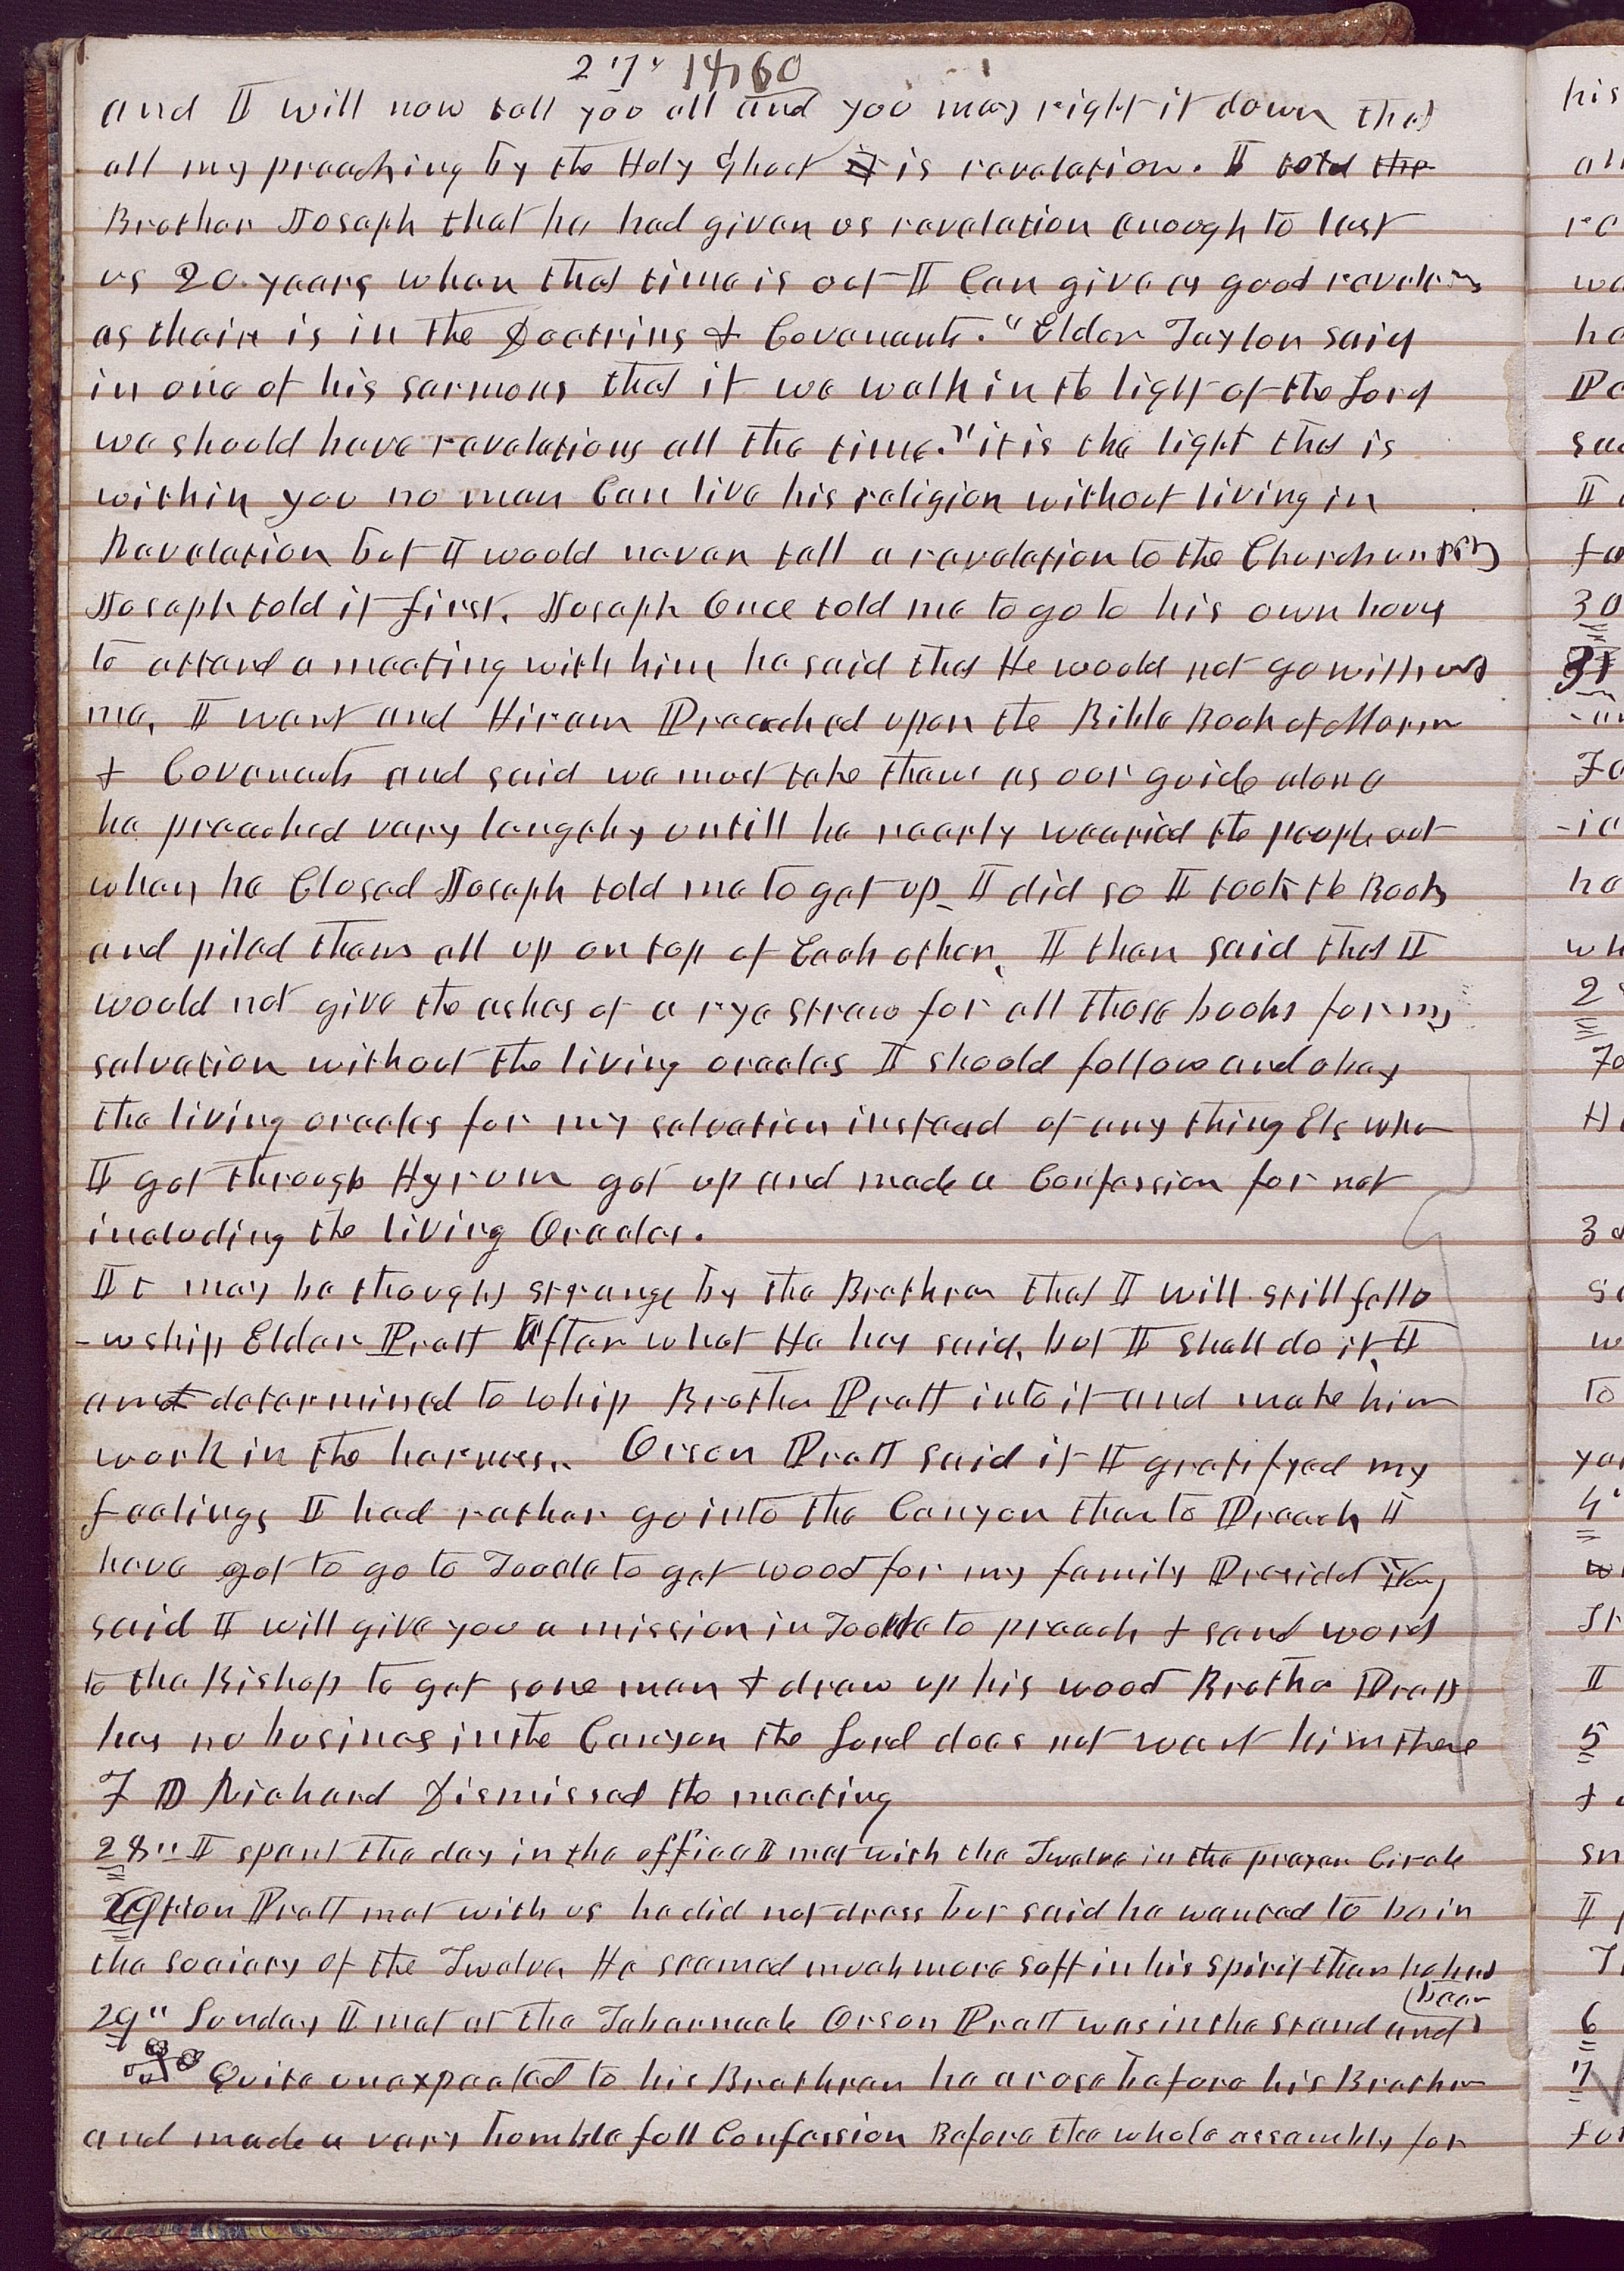 27" 1860
and I will now tell you all and you may right it down that
all my preaching by the Holy Ghost it is revelation. I told the
Brother Joseph that he had given us revelation enough to last
us 20 years when that time is out I Can give as good revelation
as their is in the Doctrins & Covenants. "Elder Taylor said
in one of his sermons that if we walk in the light of the Lord
we should have revelations all the time." it is the light that is
within you no man Can live his religion without living in
Revelation but I would never tell a revelation to the Church untill
Joseph told it first. Joseph Once told me to go to his own house
to attend a meeting with him he said that He would not go without
me. I went and Hiram Preached upon the Bible Book of Mormon
& Covenants and said we must take them as our guide alone
he preached very lengthy untill he nearly wearied the people out
when he Closed Joseph told me to get up I did so I took the Books
and piled them all up on top of Each other. I then said that I
would not give the ashes of a rye straw for all those books for my
salvation without the living oracles I should follow and obey
the living oracles for my salvation instead of any thing Els when
I got through Hyrum got up and made a Confession for not
including the living Oracles.
It may be thought strange by the Brethren that I will still fello
-wship Elder Pratt After what He has said, but I shall do it, I
am determined to whip Brother Pratt into it and make him
work in the harness. Orson Pratt said if I gratifyed my
feelings I had rather go into the Canyon than to Preach I
have got to go to Tooele to get wood for my family Presidet Young
said I will give you a mission in Tooele to preach & send word
to the Bishop to get some man & draw up his wood Brother Pratt
has no busines in the Canyon the Lord does not want him there
F D Richard Dismissed the meeting
28" I spent the day in the office I met with the Twelve in the prayer Circle
Orson Pratt met with us he did not dress but said he wanted to be in
the society of the Twelve He seemed much more soft in his spirit than he had
been
29" Sunday I met at the Tabernacle Orson Pratt was in the stand and
Quite unexpected to his Brethren he arose before his Brethren
and made a very humble full Confession Before the whole assembly for